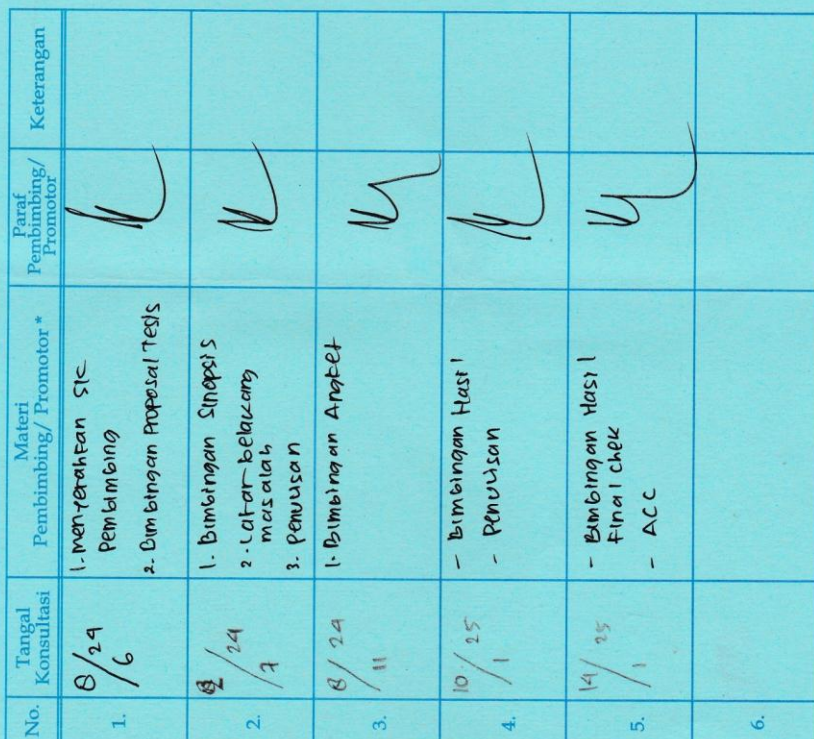 No.
Tangal
Konsultasi
Materi
Pembimbing/ Promotor *
Paraf
Pembimbing/
Promotor
Keterangan
1.
8/6 24
1. menyerahkan SK
Pembimbing
2. Bimbingan Proposal Tesis
2.
2/7 24
1. Bimbingan Sinopsis
2. Latar belakang
masalah
3. Penulisan
3.
8/11 24
1. Bimbingan Angket
4.
10/1 25
- Bimbingan Hasil
- Penulisan
5.
14/1 25
- Bimbingan Hasil
Final chek
- ACC
6.